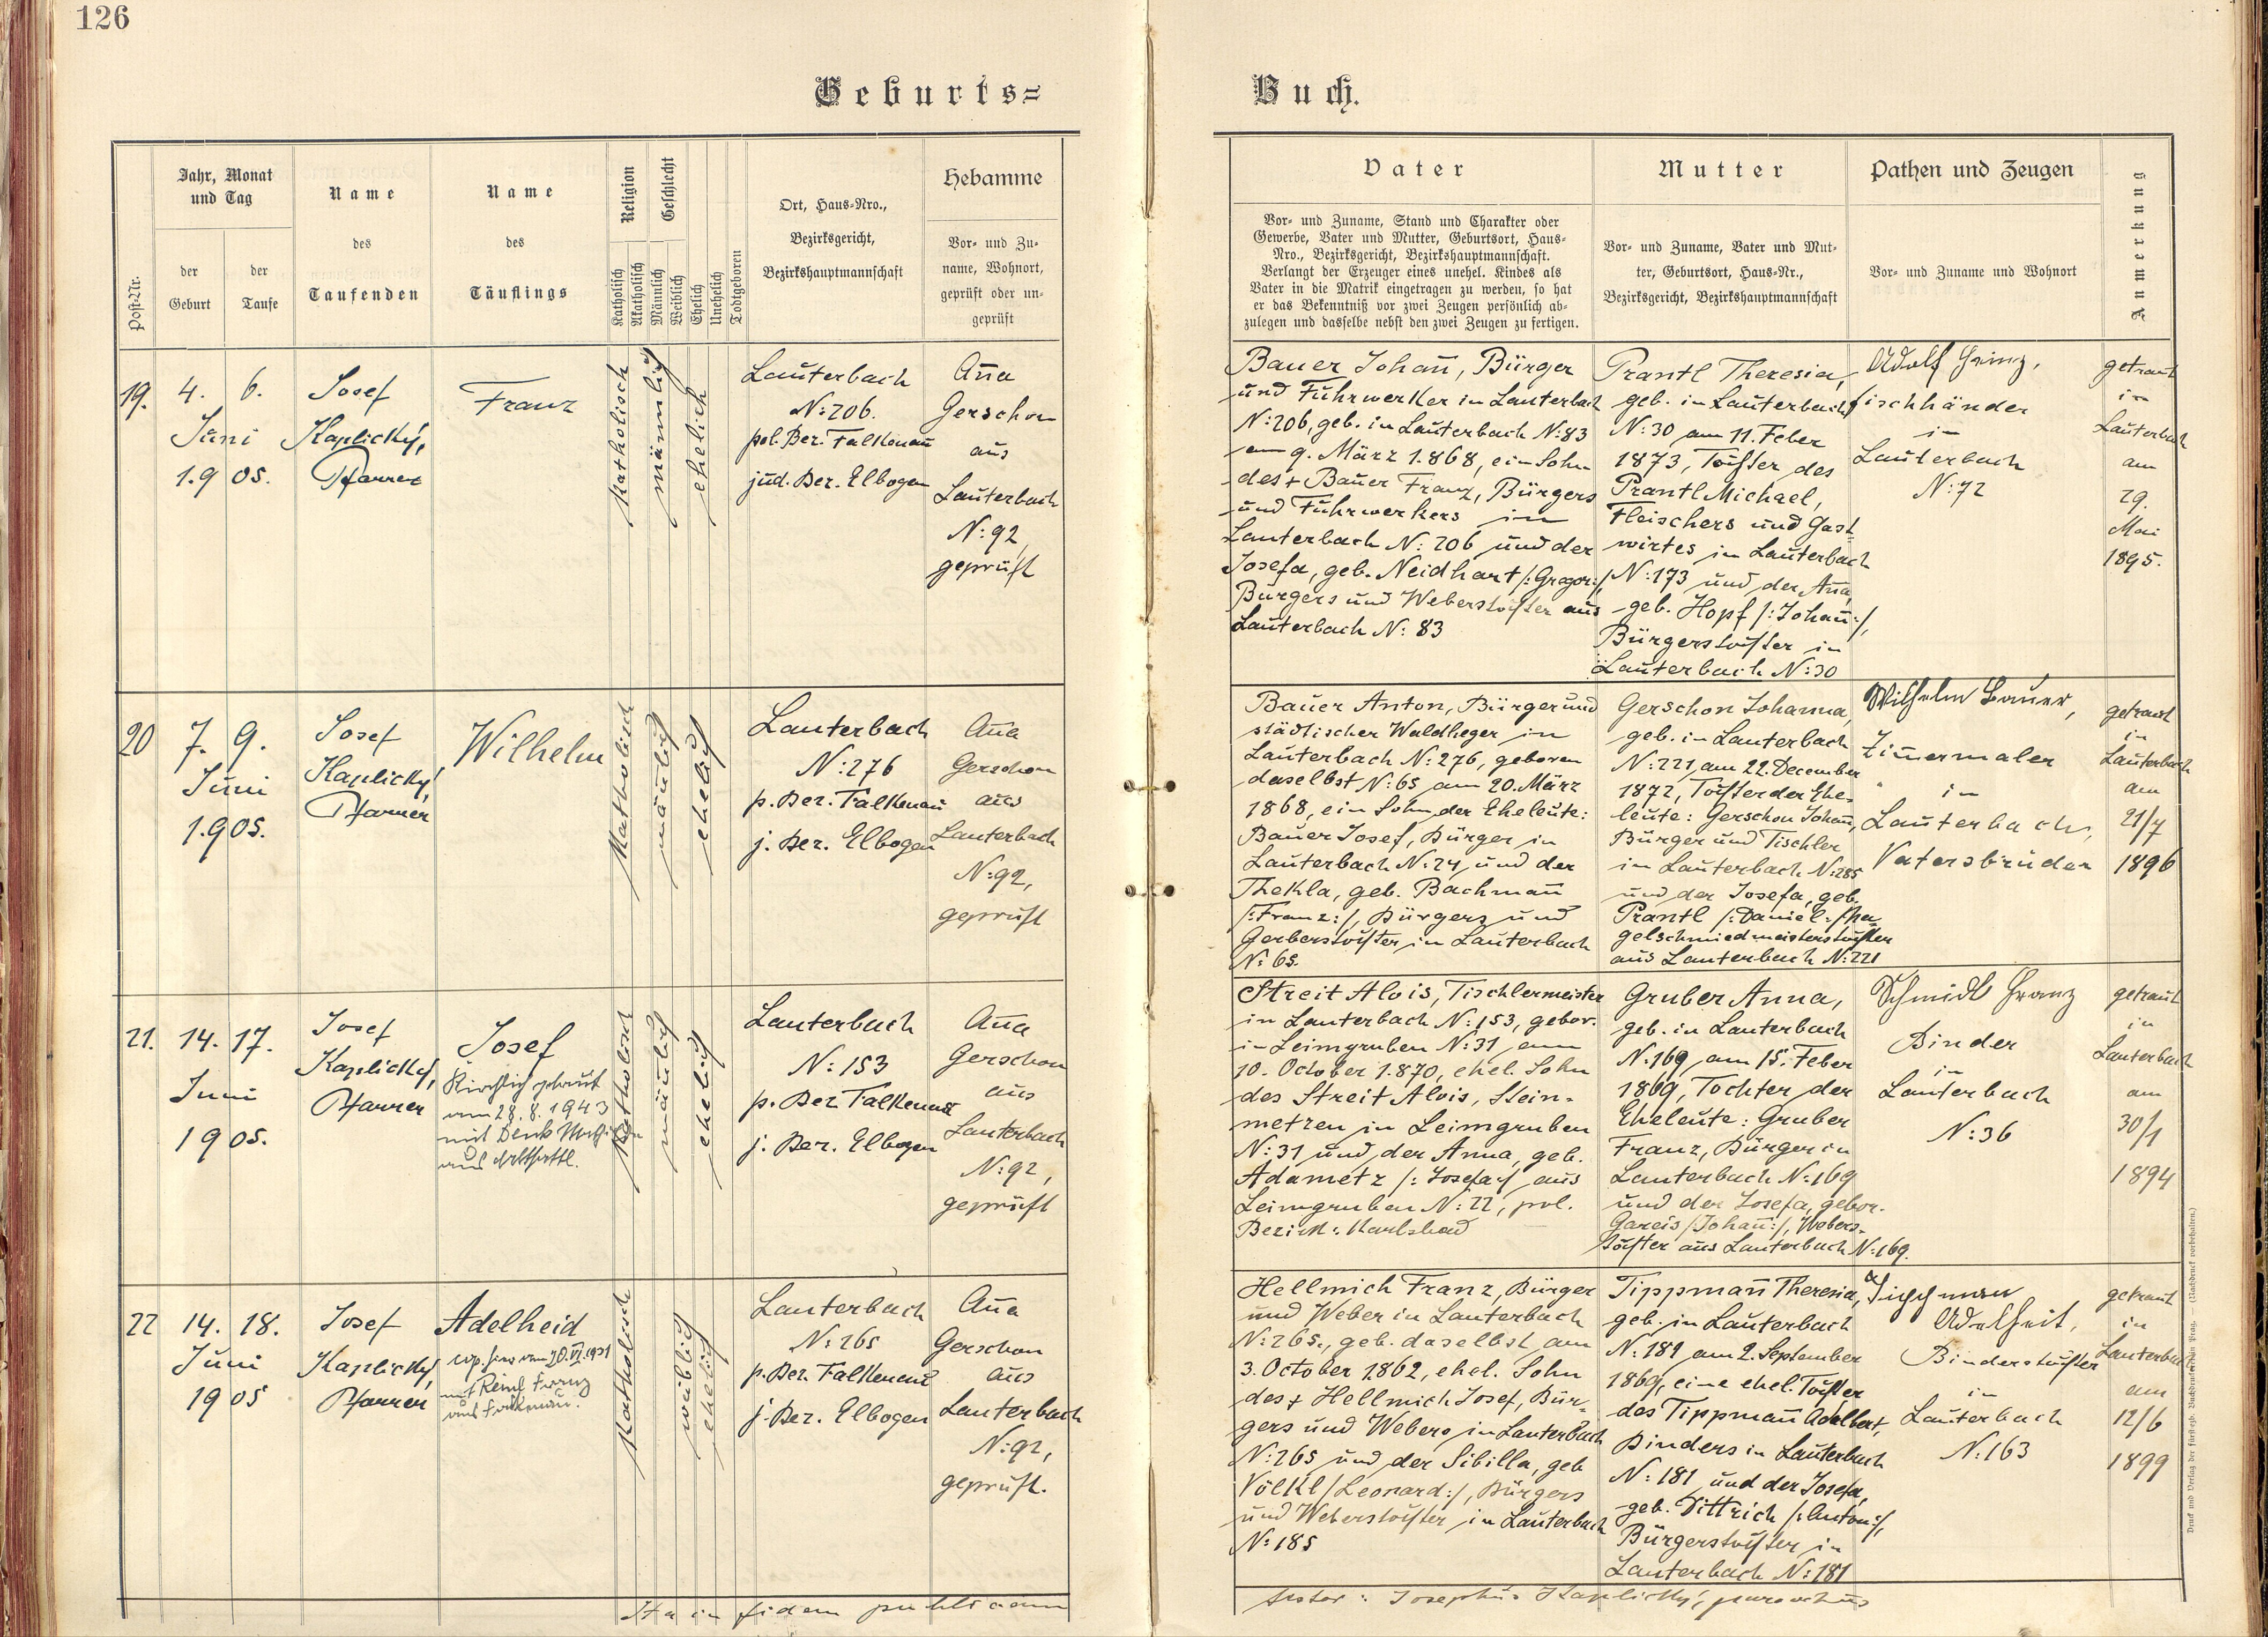 126
Geburts=
Buch.
Post-Nr.
Jahr, Monat
und Tag
der
Geburt
der
Taufe
Name
des
Taufenden
Name
des
Täuflings
Religion
Katholisch
Akatholisch
Geschlecht
Männlich
Weiblich
Ehelich
Unehelich
Todtgeboren
Ort, Haus-Nro.,
Bezirksgericht,
Bezirkshauptmannschaft
Hebamme
Vor- und Zu-
name, Wohnort,
geprüft oder un-
geprüft
Vater
Vor- und Zuname, Stand und Charakter oder
Gewerbe, Vater und Mutter, Geburtsort, Haus-
Nro., Bezirksgericht, Bezirkshauptmannschaft.
Verlangt der Erzeuger eines unehel. Kindes als
Vater in die Matrik eingetragen zu werden, so hat
er das Bekenntniß vor zwei Zeugen persönlich ab-
zulegen und dasselbe nebst den zwei Zeugen zu fertigen.
Mutter
Vor- und Zuname, Vater und Mut-
ter, Geburtsort, Haus-Nr.,
Bezirksgericht, Bezirkshauptmannschaft
Pathen und Zeugen
Vor- und Zuname und Wohnort
Anmerkung
19.
4. 6.
Juni
1905.
Josef
Kaplický,
Pfarrer
Franz
Katholisch
männlich
ehelich
Lauterbach
N: 206.
pol. Bez. Falkenau
jud. Bez. Elbogen
Anna
Gerschon
aus
Lauterbach
N: 92,
geprüft
Bauer Johann, Bürger
und Fuhrwerker in Lauterbach
N: 206, geb. in Lauterbach N: 83
am 9. März 1868, ein Sohn
des + Bauer Franz, Bürgers
und Fuhrwerkers in
Lauterbach N: 206 und der
Josefa, geb. Neidhart /:Gregor:/
Bürgers und Weberstochter aus
Lauterbach N: 83
Prantl Theresia,
geb. in Lauterbach
N: 30 am 11. Feber
1873, Tochter des
Prantl Michael,
Fleischers und Gast-
wirtes in Lauterbach
N: 173 und der Anna
geb. Hopf /:Johann:/,
Bürgerstochter in
Lauterbach N: 30
Adolf
Fischhänder
in
Lauterbach
N: 72
getraut
in
Lauterbach
am
29.
Mai
1895.
20
7. 9.
Juni
1905.
Josef
Kaplický,
Pfarrer
Wilhelm
Katholisch
männlich
ehelich
Lauterbach
N: 276
p. Bez. Falkenau
j. Bez. Elbogen
Anna
Gerschon
aus
Lauterbach
N: 92,
geprüft
Bauer Anton, Bürger und
städtischer Waldheger in
Lauterbach N: 276, geboren
daselbst N: 65 am 20. März
1868, ein Sohn der Eheleute:
Bauer Josef, Bürger in
Lauterbach N: 24 und der
Thekla, geb. Bachmann
/:Franz:/, Bürgers und
Gerberstochter in Lauterbach
N: 65.
Gerschon Johanna,
geb. in Lauterbach
N: 221 am 22. December
1872, Tochter der Ehe-
leute: Gerschon Johann,
Bürger und Tischler
in Lauterbach N: 285
und der Josefa, geb.
Prantl /:Daniel:/ Na-
gelschmiedmeisterstochter
aus Lauterbach N: 221
Wilhelm Bauer,
Zimmermaler
in
Lauterbach,
Vatersbruder
getraut
in
Lauterbach
am
21/7
1896
21.
14. 17.
Juni
1905.
Josef
Kaplický,
Pfarrer
Josef
Kirchlich getraut
am 28. 8. 1943
mit Denk
aus
Katholisch
männlich
ehelich
Lauterbach
N: 153
p. Bez Falkenau
j. Bez. Elbogen
Anna
Gerschon
aus
Lauterbach
N: 92,
geprüft
Streit Alois, Tischlermeister
in Lauterbach N: 153, gebor.
in Leimgruben N: 31 am
10. October 1870, ehel. Sohn
des Streit Alois, Stein-
metzen in Leimgruben
N: 31 und der Anna, geb.
Adametz /:Josefa:/ aus
Leimgruben N: 22, pol.
Bezirk: Karlsbad
Gruber Anna,
geb. in Lauterbach
N: 169 am 15. Feber
1869, Tochter der
Eheleute: Gruber
Franz, Bürger in
Lauterbach N: 169
und der Josefa, gebor.
Gareis /Johann:/, Webers-
tochter aus Lauterbach N: 169.
Schmidt Franz
Binder
in
Lauterbach
N: 36
getraut
in
Lauterbach
am
30/1
1894
22
14. 18.
Juni
1905
Josef
Kaplický,
Pfarrer
Adelheid
cop. hier am 20. VI. 1931
mit Franz
aus Falkenau.
Katholisch
weiblich
ehelich
Lauterbach
N: 265
p. Bez. Falkenau
j. Bez. Elbogen
Anna
Gerschon
aus
Lauterbach
N: 92,
geprüft.
Hellmich Franz, Bürger
und Weber in Lauterbach
N: 265., geb. daselbst am
3. October 1862, ehel. Sohn
des + Hellmich Josef, Bür-
gers und Webers in Lauterbach
N: 265 und der Sibilla, geb
Völkl /Leonard:/, Bürgers
und Weberstochter in Lauterbach
N: 185
Tippmann Theresia,
geb. in Lauterbach
N: 181 am 2. September
1869, eine ehel. Tochter
des Tippmann Adalbert,
Binders in Lauterbach
N: 181 und der Josefa,
geb. Dittrich /:Anton:/,
Bürgerstochter in
Lauterbach N: 181
Tippmann
Adelheit,
Binderstochter
in
Lauterbach
N: 163
getraut
in
Lauterbach
am
12/6
1899
Ita in fidem publicam
testor: Josephus Kaplický, parochus
Druck und Verlag der fürsterzb. Buchdruckerei in Prag. (Nachdruck vorbehalten.)